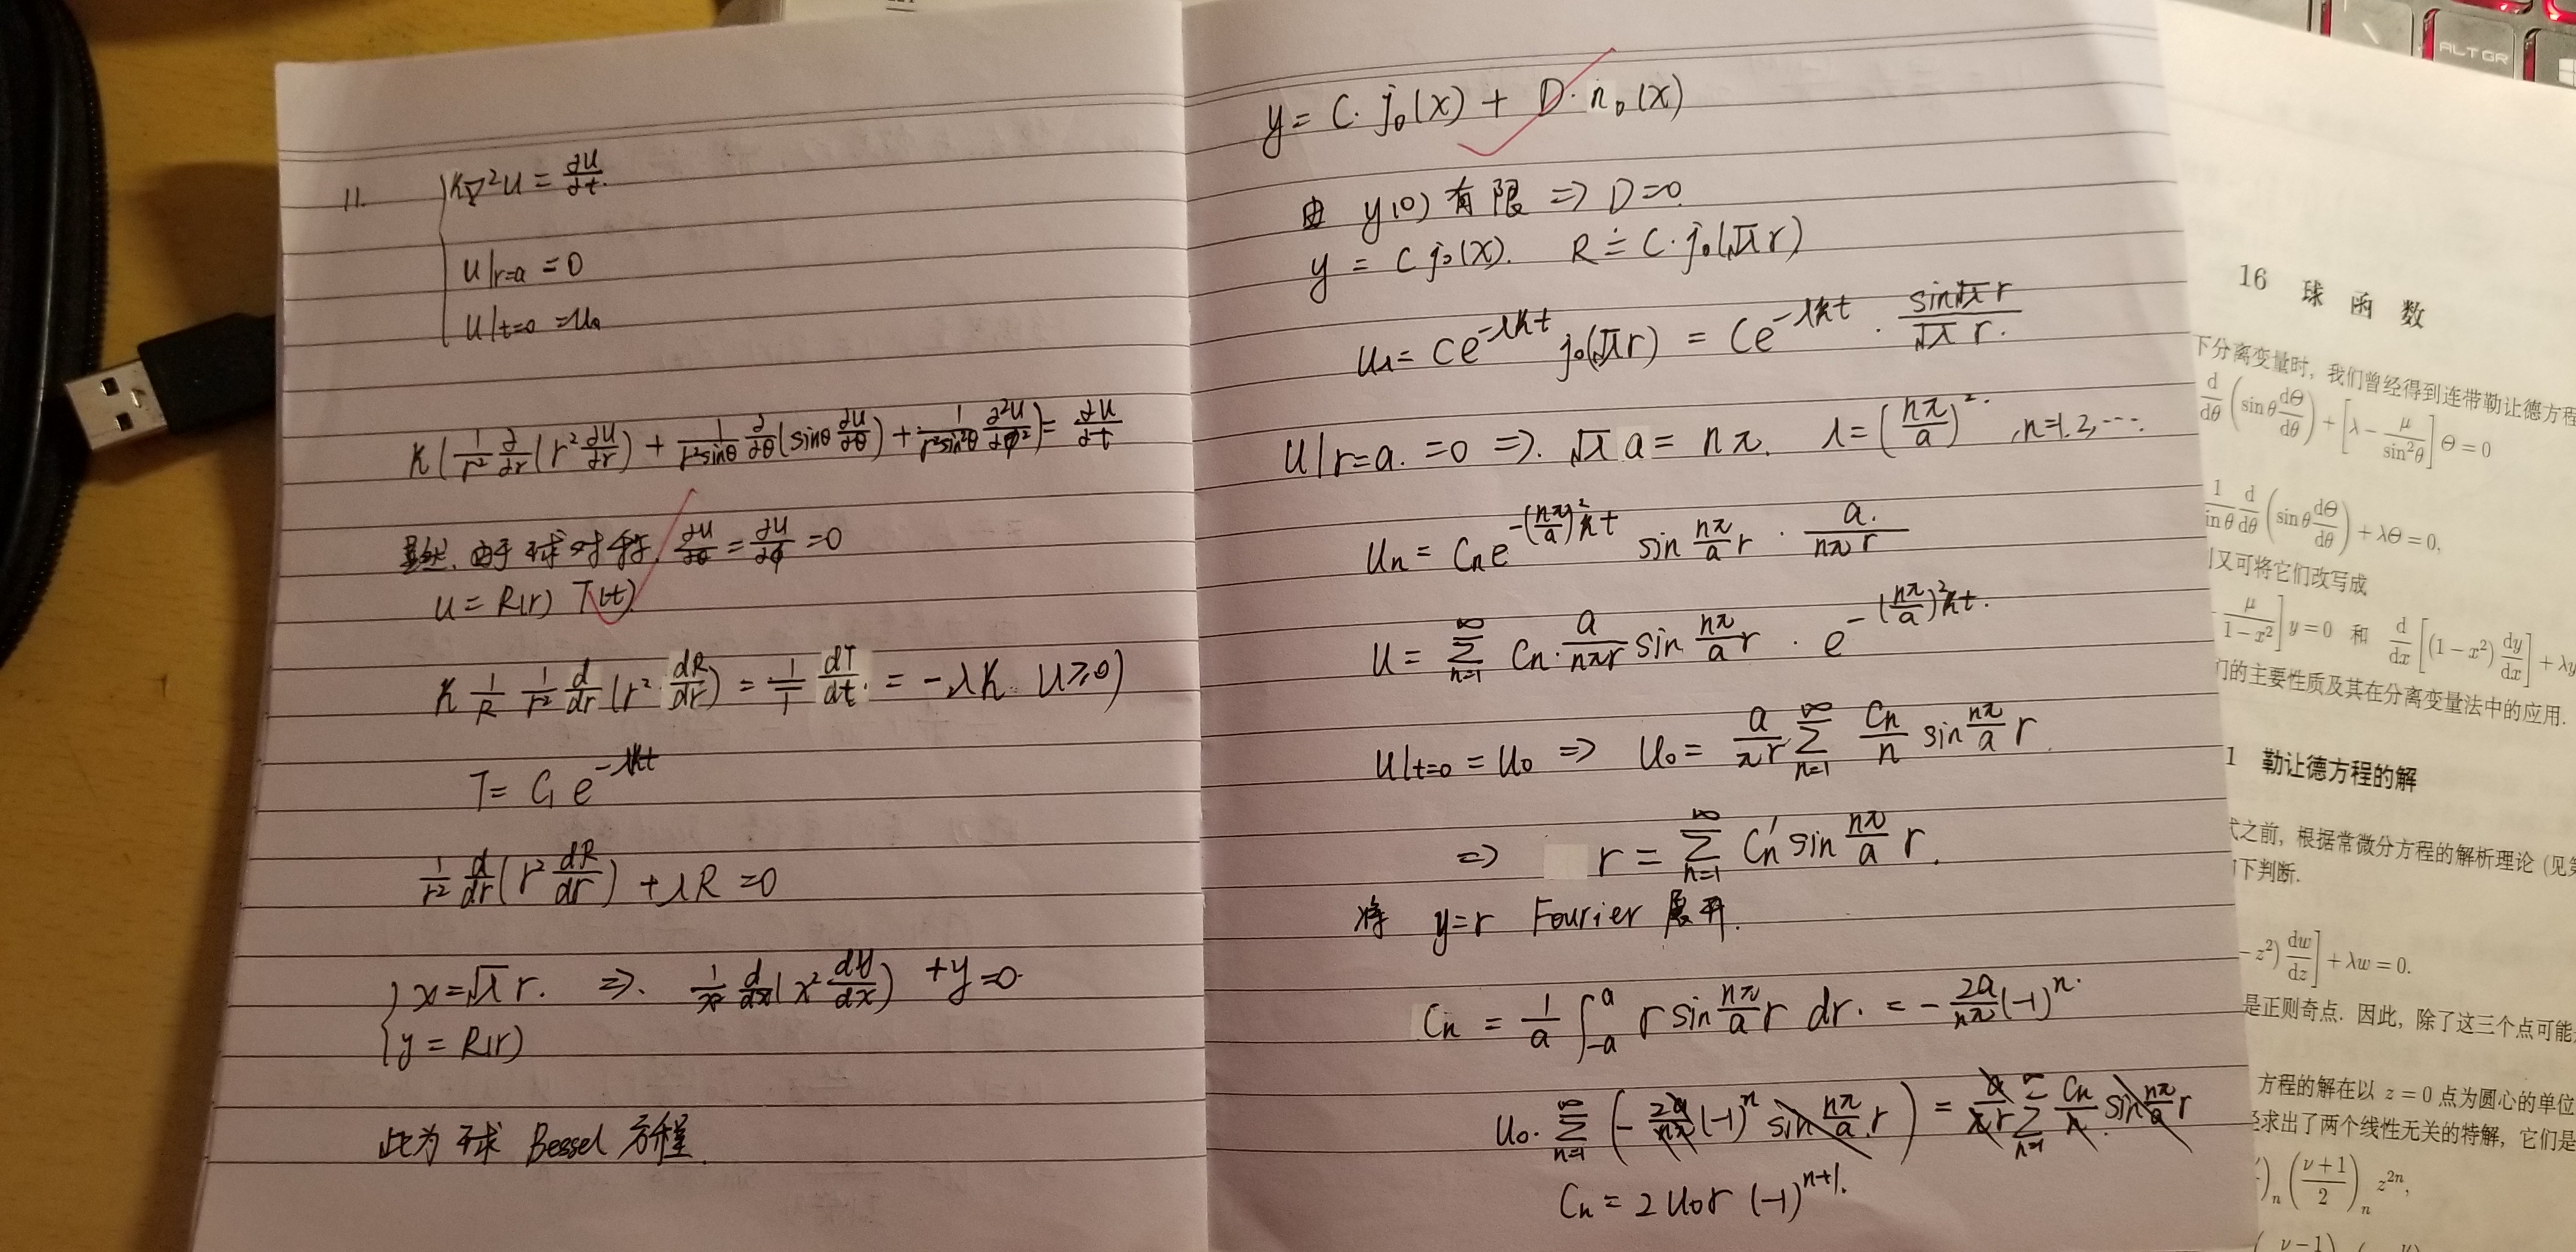 11. κ∇²u = ∂u/∂t
u|r=a = 0
u|t=0 = u₀
κ(1/r² ∂/∂r(r² ∂u/∂r) + 1/(r²sinθ) ∂/∂θ(sinθ ∂u/∂θ) + 1/(r²sin²θ) ∂²u/∂φ²) = ∂u/∂t
显然. 由于球对称, ∂u/∂θ = ∂u/∂φ = 0
u = R(r) T(t)
κ 1/R 1/r² d/dr(r² dR/dr) = 1/T dT/dt = -λκ (λ≥0)
T = C₁ e^(-λκt)
1/r² d/dr(r² dR/dr) + λR = 0
{ x = √λ r. ⇒. 1/x² d/dx(x² dy/dx) + y = 0
y = R(r)
此为球 Bessel 方程
y = C·j₀(x) + D·n₀(x)
由 y(0) 有限 ⇒ D=0.
y = C j₀(x). R = C·j₀(√λ r)
uλ = C e^(-λκt) j₀(√λ r) = C e^(-λκt) · sin√λ r / √λ r.
u|r=a. = 0 ⇒. √λ a = nπ. λ = (nπ/a)². , n=1.2,….
uₙ = Cₙ e^(-(nπ/a)²κt) sin nπ/a r · a/nπr
u = ∑_(n=1)^∞ Cₙ · a/nπr sin nπ/a r · e^(-(nπ/a)²κt).
u|t=0 = u₀ ⇒ u₀ = a/πr ∑_(n=1)^∞ Cₙ/n sin nπ/a r
⇒ r = ∑_(n=1)^∞ Cₙ′ sin nπ/a r.
将 y=r Fourier 展开.
Cₙ = 1/a ∫_(-a)^a r sin nπ/a r dr. = -2a/nπ (-1)ⁿ.
u₀·∑_(n=1)^∞ (-2a/nπ (-1)ⁿ sin nπ/a r) = a/πr ∑_(n=1)^∞ Cₙ/n sin nπ/a r
Cₙ = 2u₀r (-1)^(n+1).
ALT GR
16 球 函 数
下分离变量时, 我们曾经得到连带勒让德方程
d/dθ (sinθ dΘ/dθ) + [λ - μ/sin²θ] Θ = 0
1/sinθ d/dθ (sinθ dΘ/dθ) + λΘ = 0,
又可将它们改写成
μ/(1-x²)] y = 0 和 d/dx [(1-x²) dy/dx] + λy
们的主要性质及其在分离变量法中的应用.
1 勒让德方程的解
式之前, 根据常微分方程的解析理论 (见第
下判断.
- z²) dw/dz] + λw = 0.
是正则奇点. 因此, 除了这三个点可能
方程的解在以 z = 0 点为圆心的单位
求出了两个线性无关的特解, 它们是
)ₙ ((ν+1)/2)ₙ z²ⁿ,